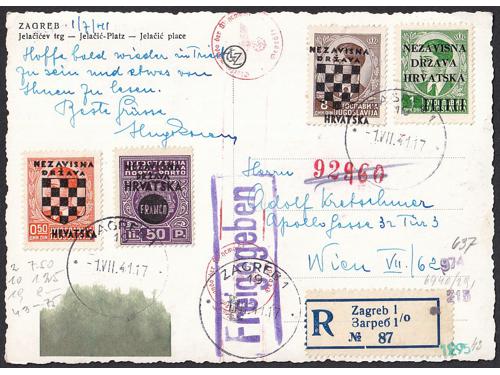 ZAGREB 1/7/41
Jelačićev trg — Jelačić-Platz — Jelačić place
Hoffe bald wieder in
zu sein und etwas von
Ihnen zu lesen.
Beste Grüsse
NEZAVISNA
DRŽAVA
HRVATSKA
8
NEZAVISNA
DRŽAVA
HRVATSKA
ZAGREB 1
-1.VII.41.17
92960
Herrn
Adolf Kretschmer
Apollogasse 32 Tür 3
Wien VII/62
NEZAVISNA
DRŽAVA
HRVATSKA
0.50
HRVATSKA
FRANCO
50 P.
ZAGREB 1
-1.VII.41.17
Freigegeben
ZAGREB 1
19
41.17
R
Zagreb 1
Загреб 1/0
№ 87
637
974
213
1295
2 7.50